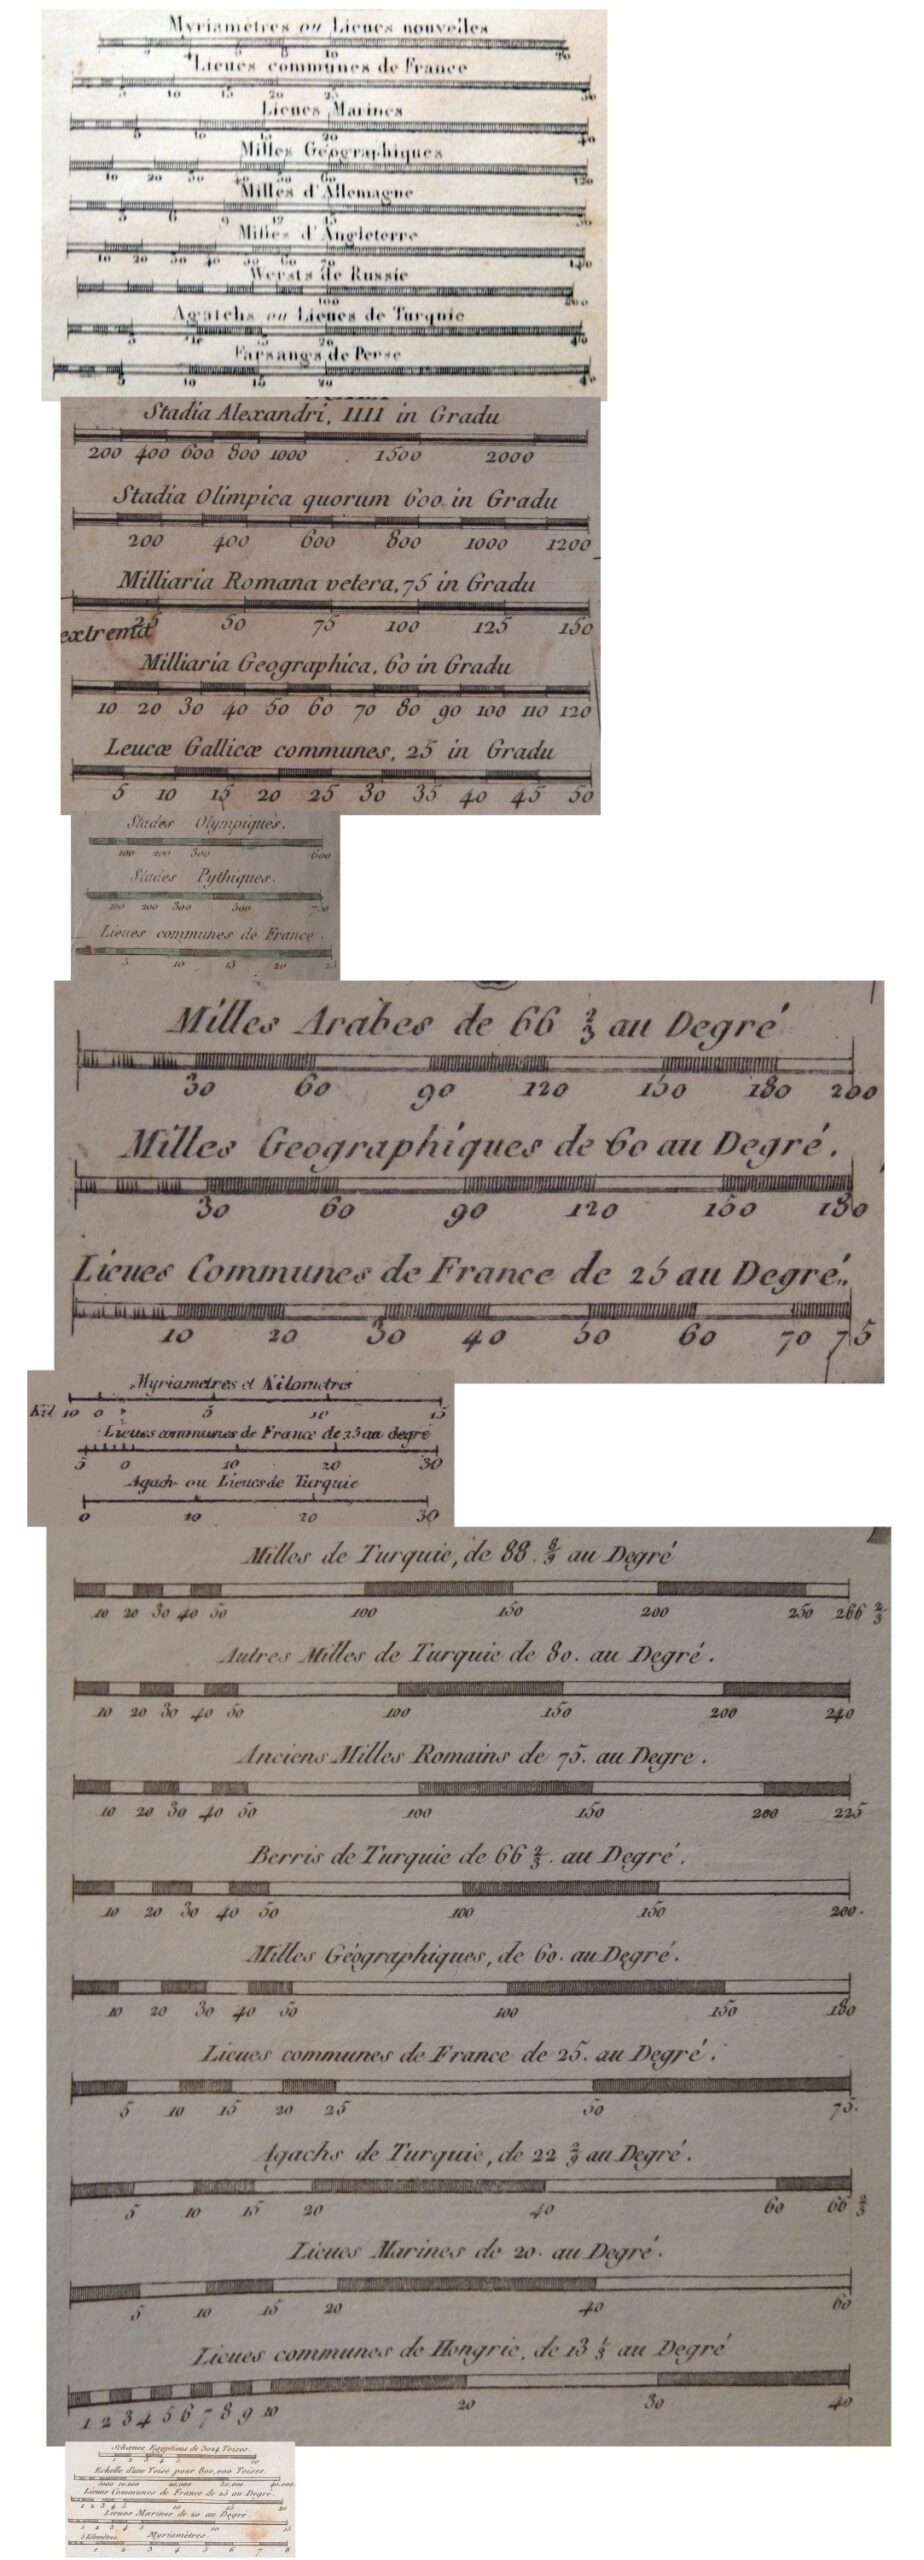 Myriametres ou Lieues nouvelles
4 6 8 10 20
Lieues communes de France
5 10 15 20 25 50
Lieues Marines
5 10 15 20 40
Milles Géographiques
10 20 30 40 50 60 120
Milles d'Allemagne
3 6 9 12 15 30
Milles d'Angleterre
10 20 30 40 50 60 70 140
Wersts de Russie
100 200
Agatchs ou Lieues de Turquie
5 10 15 20 40
Farsangs de Perse
5 10 15 20 40
Stadia Alexandri, 1111 in Gradu
200 400 600 800 1000 1500 2000
Stadia Olimpica quorum 600 in Gradu
200 400 600 800 1000 1200
Milliaria Romana vetera, 75 in Gradu
25 50 75 100 125 150
extrema
Milliaria Geographica, 60 in Gradu
10 20 30 40 50 60 70 80 90 100 110 120
Leucæ Gallicæ communes, 25 in Gradu
5 10 15 20 25 30 35 40 45 50
Stades Olympiques.
100 200 300 600
Stades Pythiques.
100 200 300 500 750
Lieues communes de France.
5 10 15 20 25
Milles Arabes de 66 2/3 au Degré
30 60 90 120 150 180 200
Milles Geographiques de 60 au Degré.
30 60 90 120 150 180
Lieues Communes de France de 25 au Degré.
10 20 30 40 50 60 70 75
Myriametres et Kilometres
Kil 10 0 5 10 15
Lieues communes de France de 25 au degré
5 0 10 20 30
Agach ou Lieues de Turquie
0 10 20 30
Milles de Turquie, de 88. 8/9 au Degré
10 20 30 40 50 100 150 200 250 266 2/3
Autres Milles de Turquie de 80. au Degré.
10 20 30 40 50 100 150 200 240
Anciens Milles Romains de 75. au Degre.
10 20 30 40 50 100 150 200 225
Berris de Turquie de 66 2/3. au Degré.
10 20 30 40 50 100 150 200.
Milles Géographiques, de 60. au Degré.
10 20 30 40 50 100 150 180
Lieues communes de France de 25. au Degré.
5 10 15 20 25 50 75.
Agachs de Turquie, de 22 2/9 au Degré.
5 10 15 20 40 60 66 2/3
Lieues Marines de 20. au Degré.
5 10 15 20 40 60
Lieues communes de Hongrie, de 13 1/3 au Degré
1 2 3 4 5 6 7 8 9 10 20 30 40
Schœnes Egyptiens de 3024 Toises.
1 2 3 4 5 10
Echelle d'une Toise pour 800,000 Toises.
5000 10,000 20,000 30,000 40,000.
Lieues Communes de France de 25 au Degré.
1 2 3 4 5 10 15 20
Lieues Marines de 20 au Degré.
1 2 3 4 5 10 15
5 Kilométres. Myriamètres.
1 2 3 4 5 6 7 8